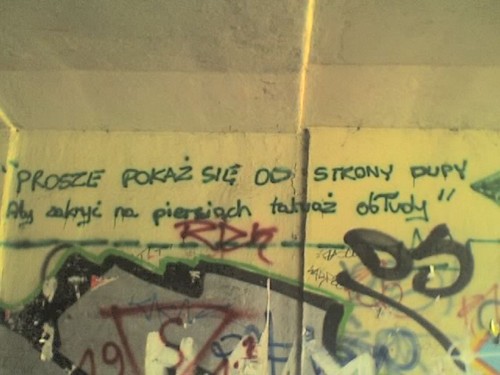 "PROSZE POKAŻ SIĘ OD STRONY DUPY
Aby zakryć na piersiach tatuaż obłudy"
RDK
S
19